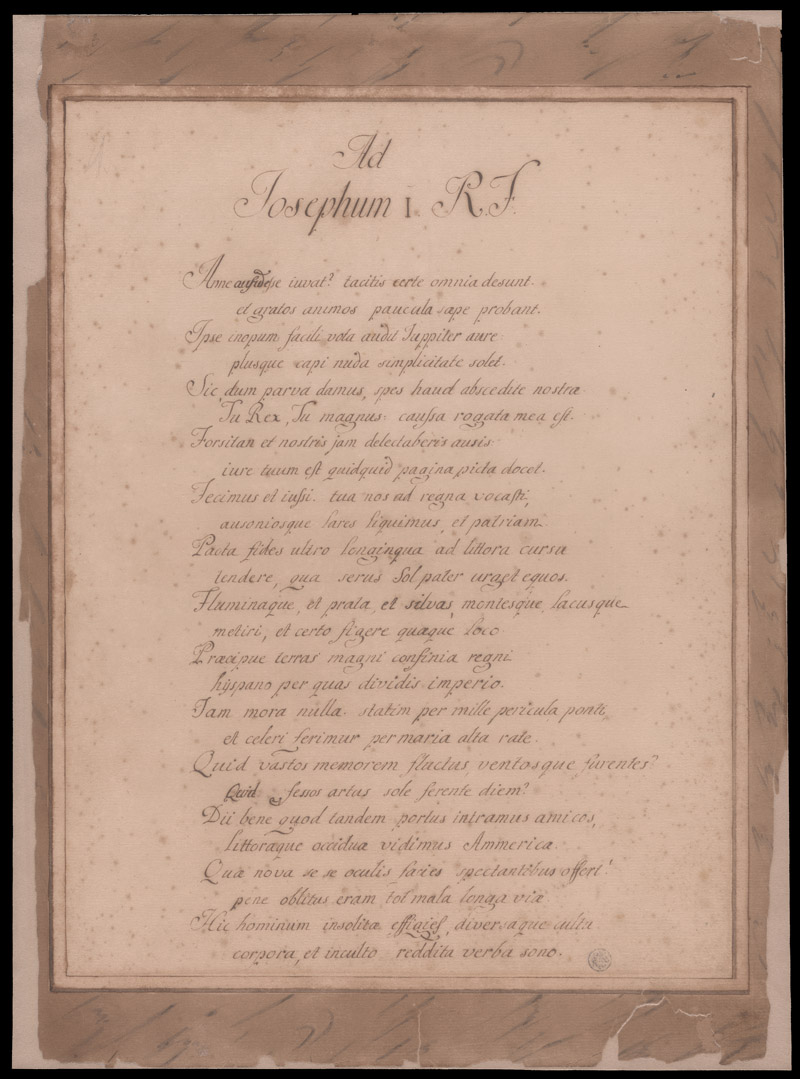 Ad
Josephum I. R.F.
Anne iuvat? tacitis certe omnia desunt.
et gratos animos paucula sæpe probant.
Ipse inopum facili vota audit Iuppiter aure
plusque capi nuda simplicitate solet.
Sic, dum parva damus, spes haud abscedite nostræ
Tu Rex, Tu magnus: caussa rogata mea est.
Forsitan et nostris jam delectaberis ausis
iure tuum est quidquid pagina picta docet.
Fecimus et iussi. tua nos ad regna vocasti,
ausoniosque lares liquimus, et patriam.
Pacta fides ultro longinqua ad littora cursu
tendere, qua serus Sol pater urget equos.
Fluminaque, et prata, et silvas, montesque, lacusque
metiri, et certo figere quæque loco
Præcipue terras magni confinia regni
hÿspano per quas dividis imperio.
Iam mora nulla. statim per mille pericula ponti,
et celeri ferimur per maria alta rate.
Quid vastos memorem fluctus, ventosque furentes?
Quid fessos artus sole ferente diem?
Dii bene quod tandem portus intramus amicos,
littoraque occidua vidimus Ammerica.
Quæ nova se se oculis facies spectantibus offert!
pene oblitus eram tot mala longa viæ
Hic hominum insolitæ effigies, diversaque culta
corpora, et inculto reddita verba sono.